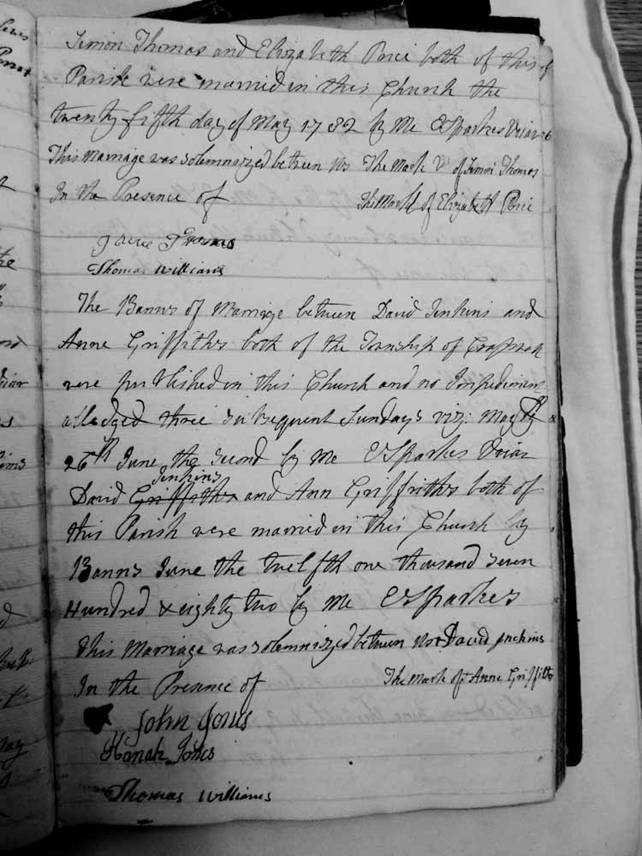 Simon Thomas and Elizabeth Price both of this
Parish were married in this Church the
twenty fifth day of May 1782 by me Sparkes Vicar
This Marriage was solemnized between us The Mark of Simon Thomas
In the Presence of The Mark of Elizabeth Price
Thomas Williams
The Banns of Marriage between David Jenkins and
Anne Griffiths both of the Township of
were published in this Church and no Impediment
alledged three subsequent Sundays viz: May
26th June the second by me Sparkes Vicar
Jenkins
David Griffiths and Ann Griffiths both of
this Parish were married in this Church by
Banns June the twelfth one thousand seven
Hundred & eighty two by me Sparkes
This Marriage was solemnized between us David Jenkins
In the Presence of The Mark of Anne Griffiths
John Jones
Hanah Jones
Thomas Williams